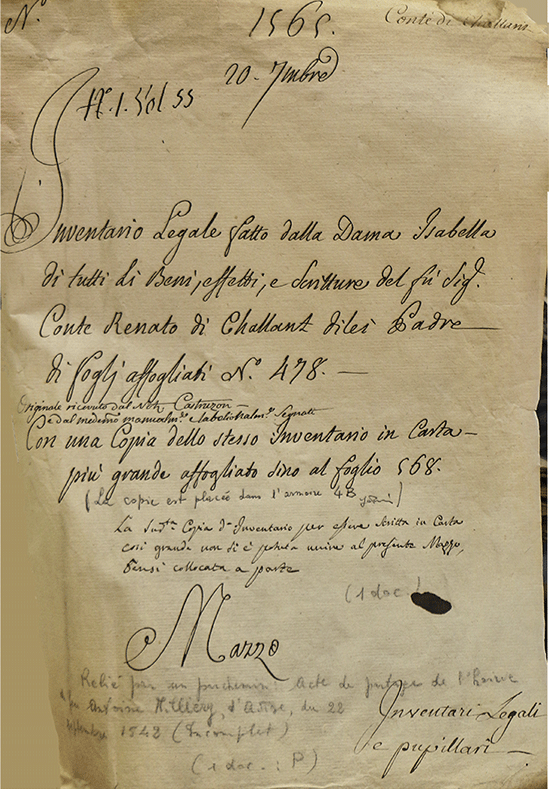 N.º
1565.
Conte di Challant
20. 7mbre
N.º 1. Vol 55
Inventario Legale fatto dalla Dama Isabella
di tutti li Beni, effetti, e Scritture del fù Sig.r
Conte Renato di Challant dilei Padre
di foglj affogliati N.º 478. —
Originale ricevuto dal Not.
e dal medemo manualm.e e tabelionalm.e Segnati
Con una Copia dello stesso Inventario in Carta
più grande affogliato sino al foglio 568.
(La copie est placée dans l'armoire 4B)
La Sud.ta Copia d'Inventario per essere Scritta in Carta
così grande non si è potuta unire al presente Mazzo,
bensì collocata a parte
(1 doc.)
Mazzo
Relié par un parchemin: Acte de partage de l'hoirie
feu Antoine d'Aoste, du 22
septembre 1542 (Incomplet)
(1 doc.: P)
Inventari Legali
e pupillari